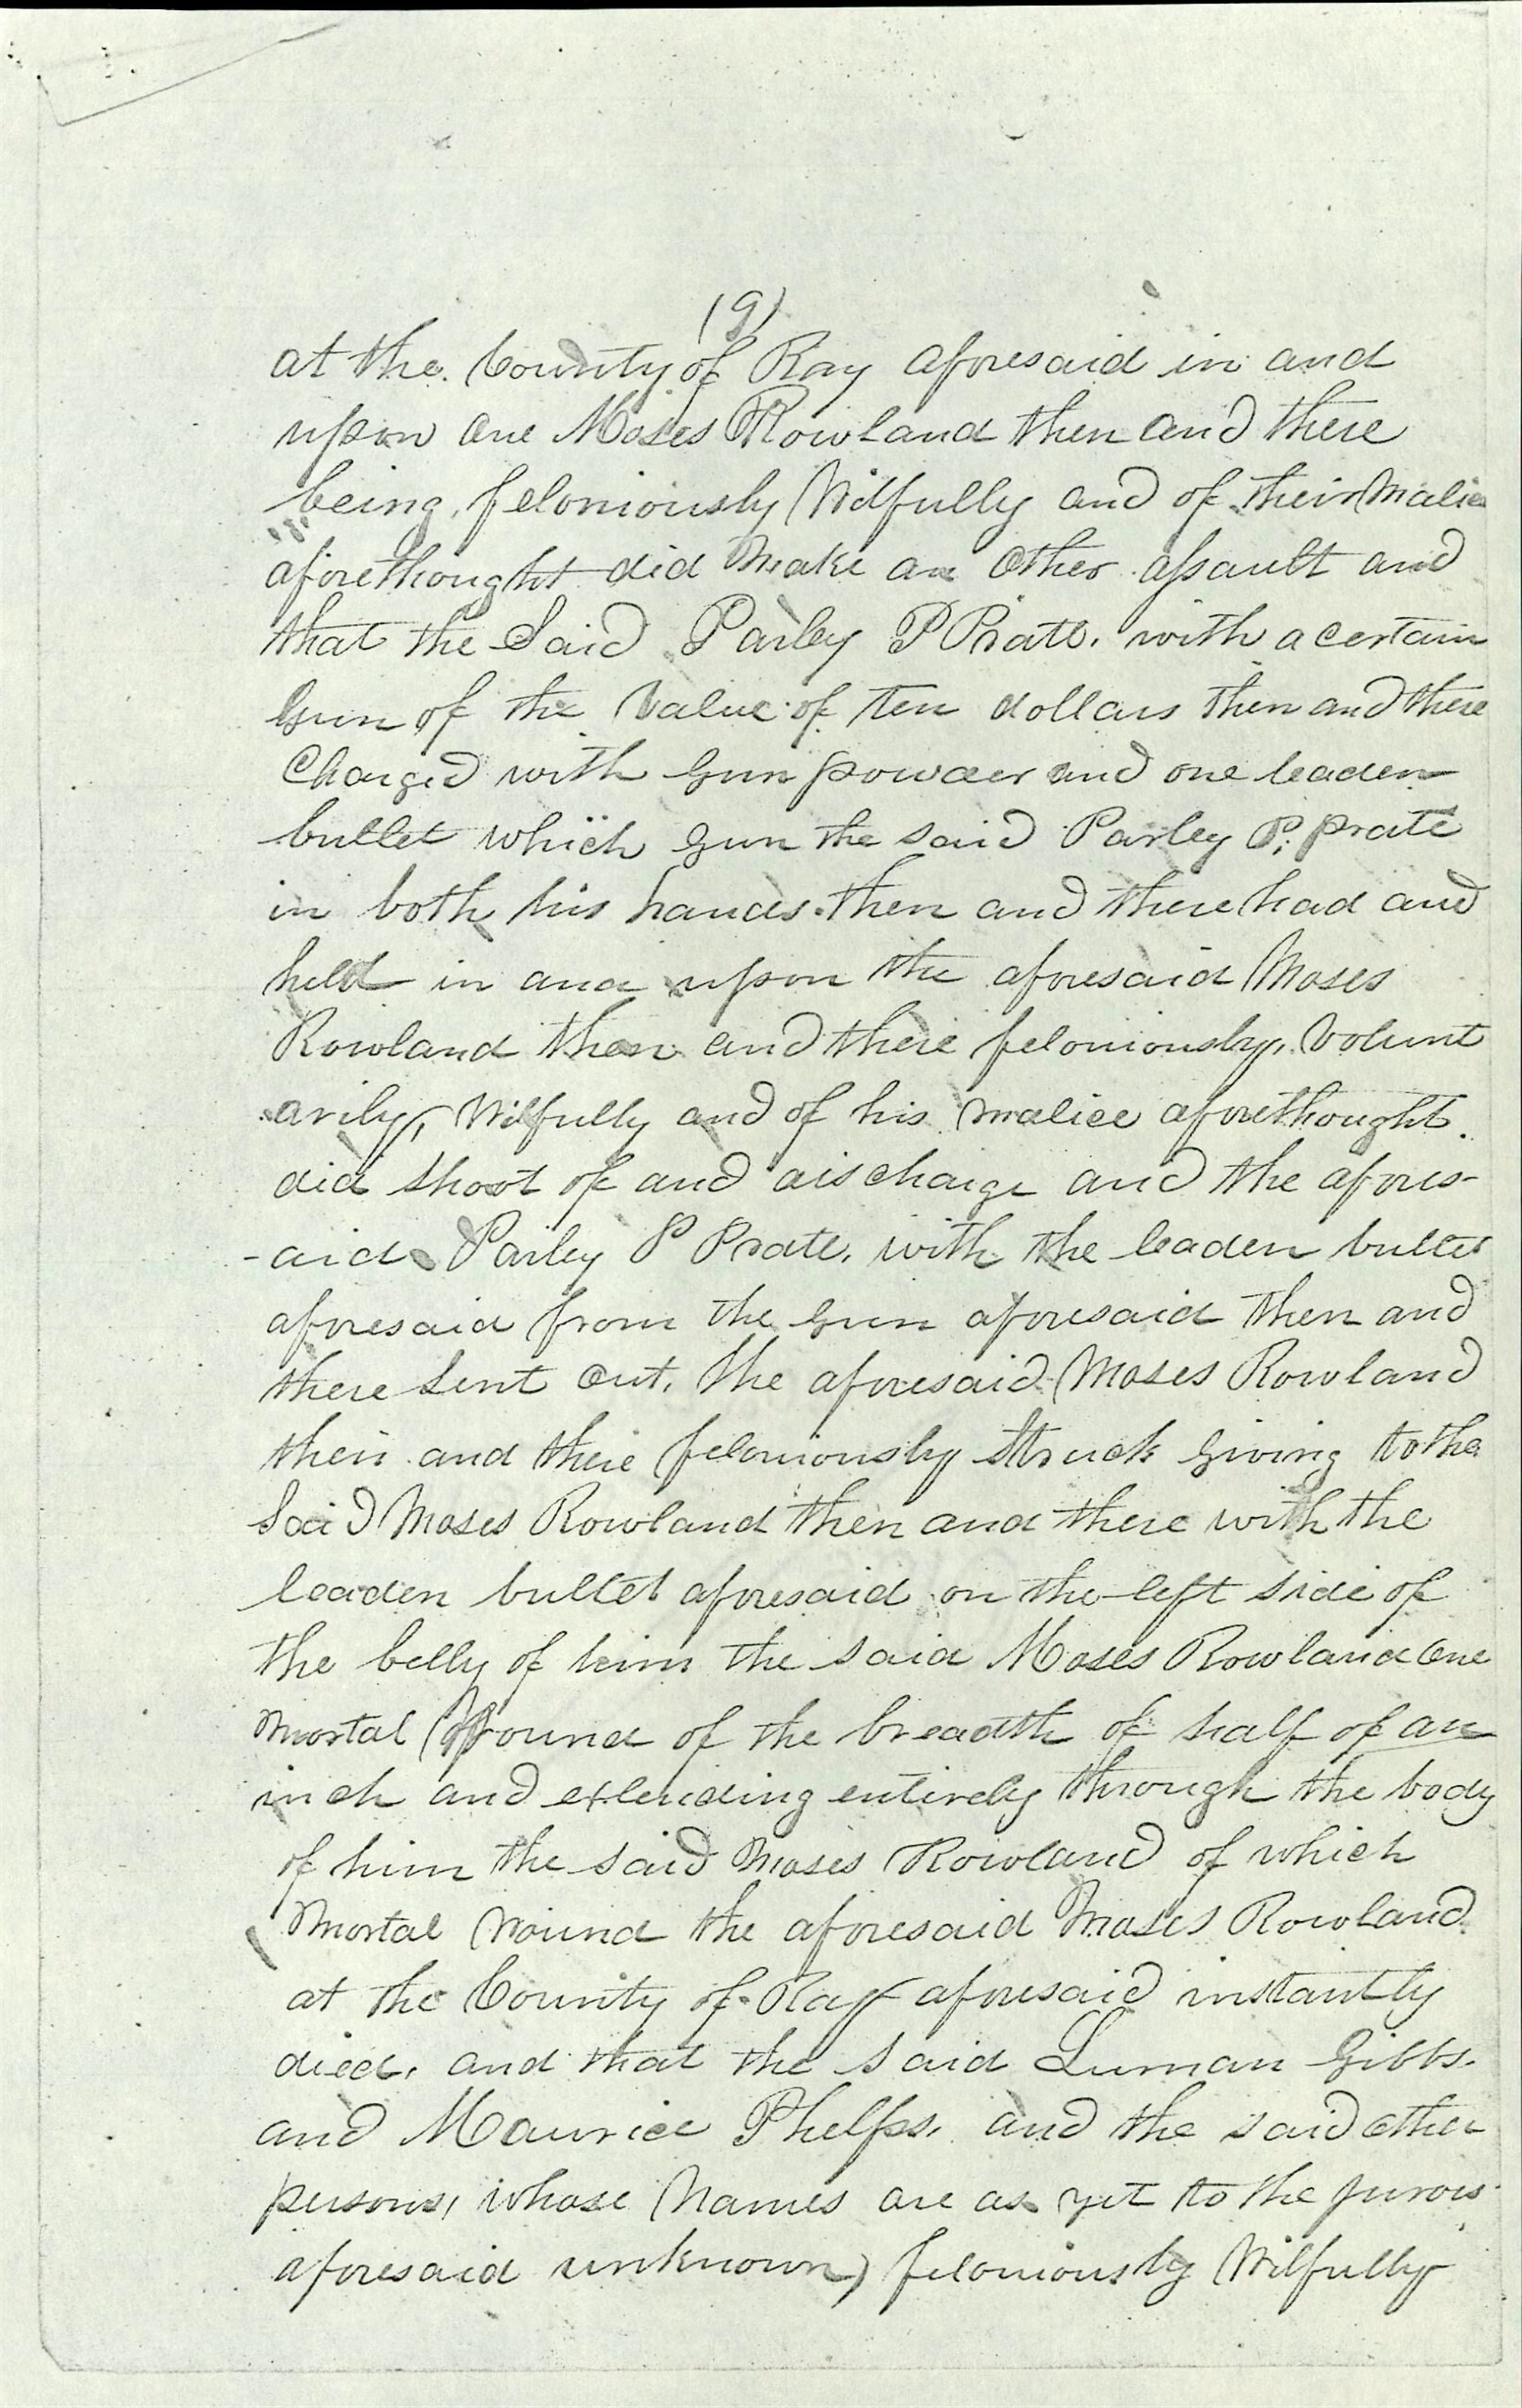 (9)
at the County of Ray aforesaid in and
upon one Moses Rowland then and there
being, feloniously Wilfully and of their Malice
aforethought did Make an Other assault and
that the Said Parley P Pratt. with a certain
Gun of the Value of ten dollars then and there
Charged with Gun powder and one leaden
bullet which Gun the said Parley P. Pratt
in both his hands then and there had and
held in and upon the aforesaid Moses
Rowland then and there feloniously, Volunt
arily, Wilfully and of his malice aforethought
did shoot of and discharge and the afores-
-aid Parley P Pratt, with the leaden bullet
aforesaid from the Gun aforesaid then and
there sent out, the aforesaid Moses Rowland
then and there feloniously Struck Giving to the
Said Moses Rowland then and there with the
leaden bullet aforesaid on the left side of
the belly of him the said Moses Rowland One
Mortal Wound of the breadth of half of an
inch and extending entirely through the body
of him the said Moses Rowland of which
Mortal Wound the aforesaid Moses Rowland
at the County of Ray aforesaid instantly
died, and that the said Luman Gibbs.
and Maurice Phelps, and the said other
persons, whose Names are as yet to the jurors
aforesaid unknown) feloniously Wilfully